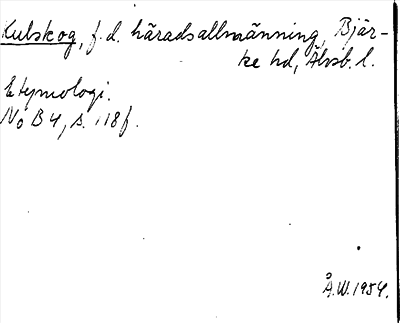 Kulskog, f.d. häradsallmänning, Bjär-
ke hd, Älvsb. l.
Etymologi.
No B 4, s. 118 f.
Å.W. 1954.